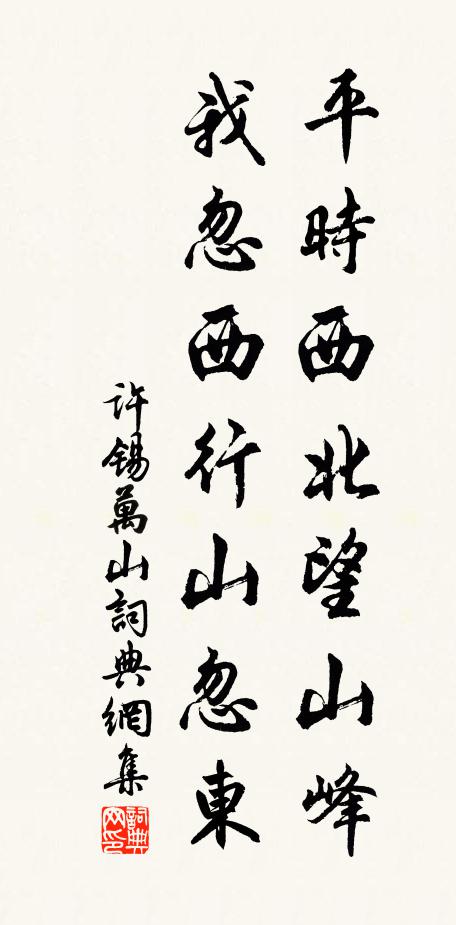 平時西北望山峰
我忽西行山忽東
許錫萬山詞典網集
詞典網印